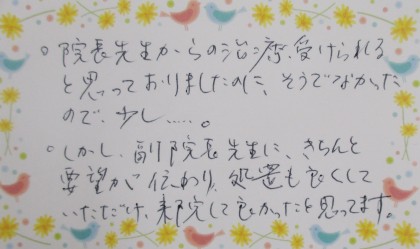 ○ 院長先生からの治療、受けられる
と思っっておりましたのに、そうでなかった
ので、少し.....。
○ しかし、副院長先生に、きちんと
要望が伝わり、処置も良くして
いただけ、来院して良かったと思ってます。